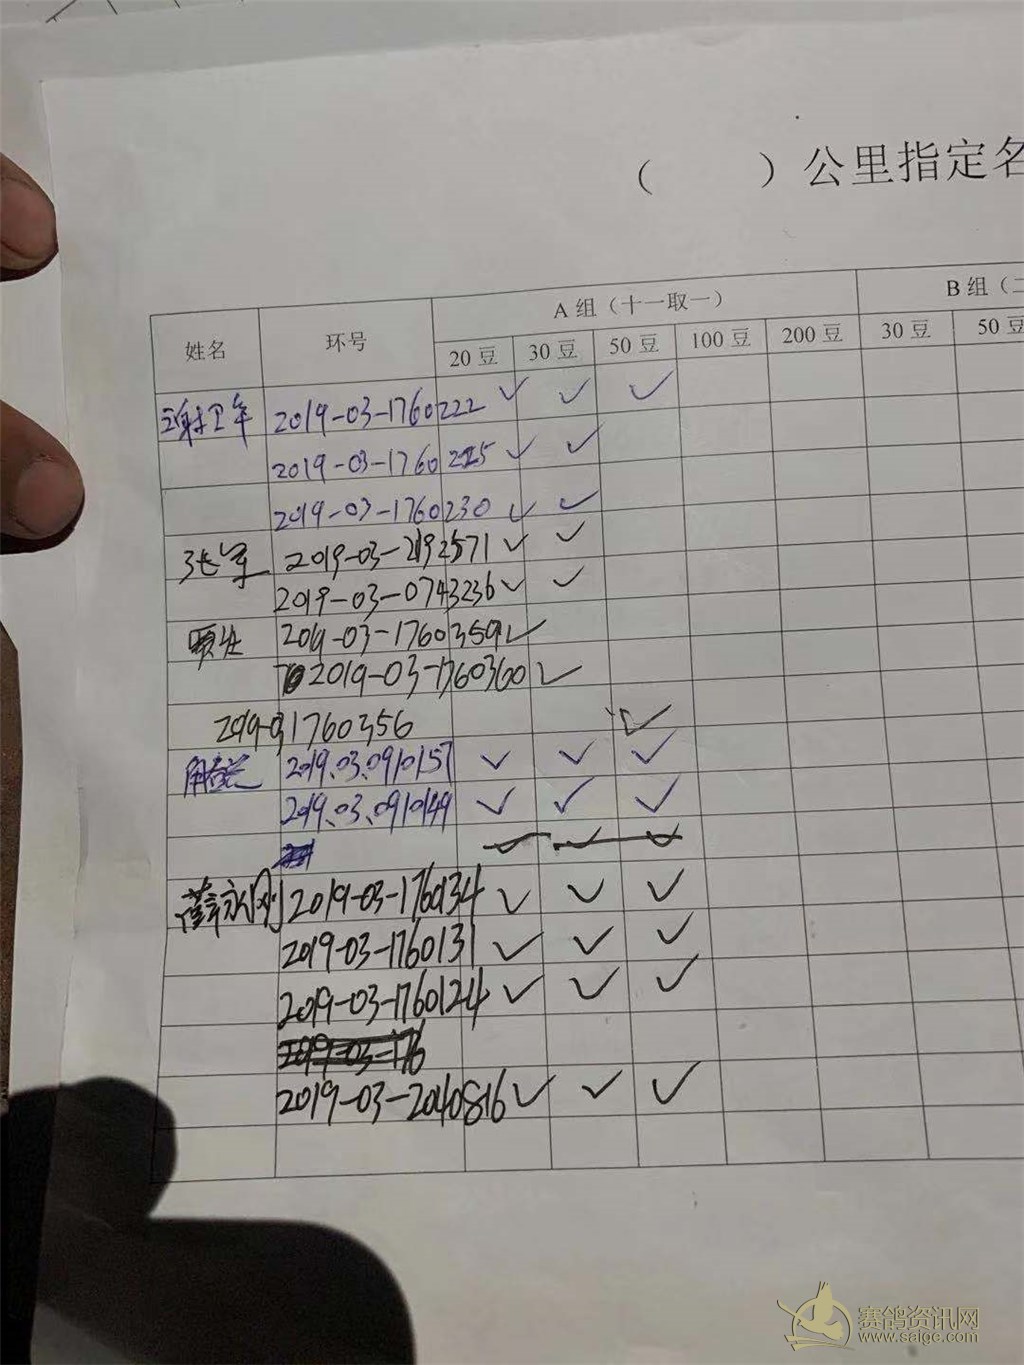 （ ）公里指定名
姓名 环号 A 组（十一取一） B 组（二
20 豆 30 豆 50 豆 100 豆 200 豆 30 豆 50 豆
2019-03-1760222 ✓ ✓ ✓
2019-03-1760225 ✓ ✓
2019-03-1760230 ✓ ✓
张军 2019-03-2192571 ✓ ✓
2019-03-0743236 ✓ ✓
2019-03-1760359 ✓
2019-03-1760360 ✓
2019-03 1760356 ✓
2019.03.0910157 ✓ ✓ ✓
2019.03.0910149 ✓ ✓ ✓
薛永刚 2019-03-1760134 ✓ ✓ ✓
2019-03-1760131 ✓ ✓ ✓
2019-03-1760124 ✓ ✓ ✓
2019-03-176
2019-03-2040816 ✓ ✓ ✓
赛鸽资讯网
www.saige.com